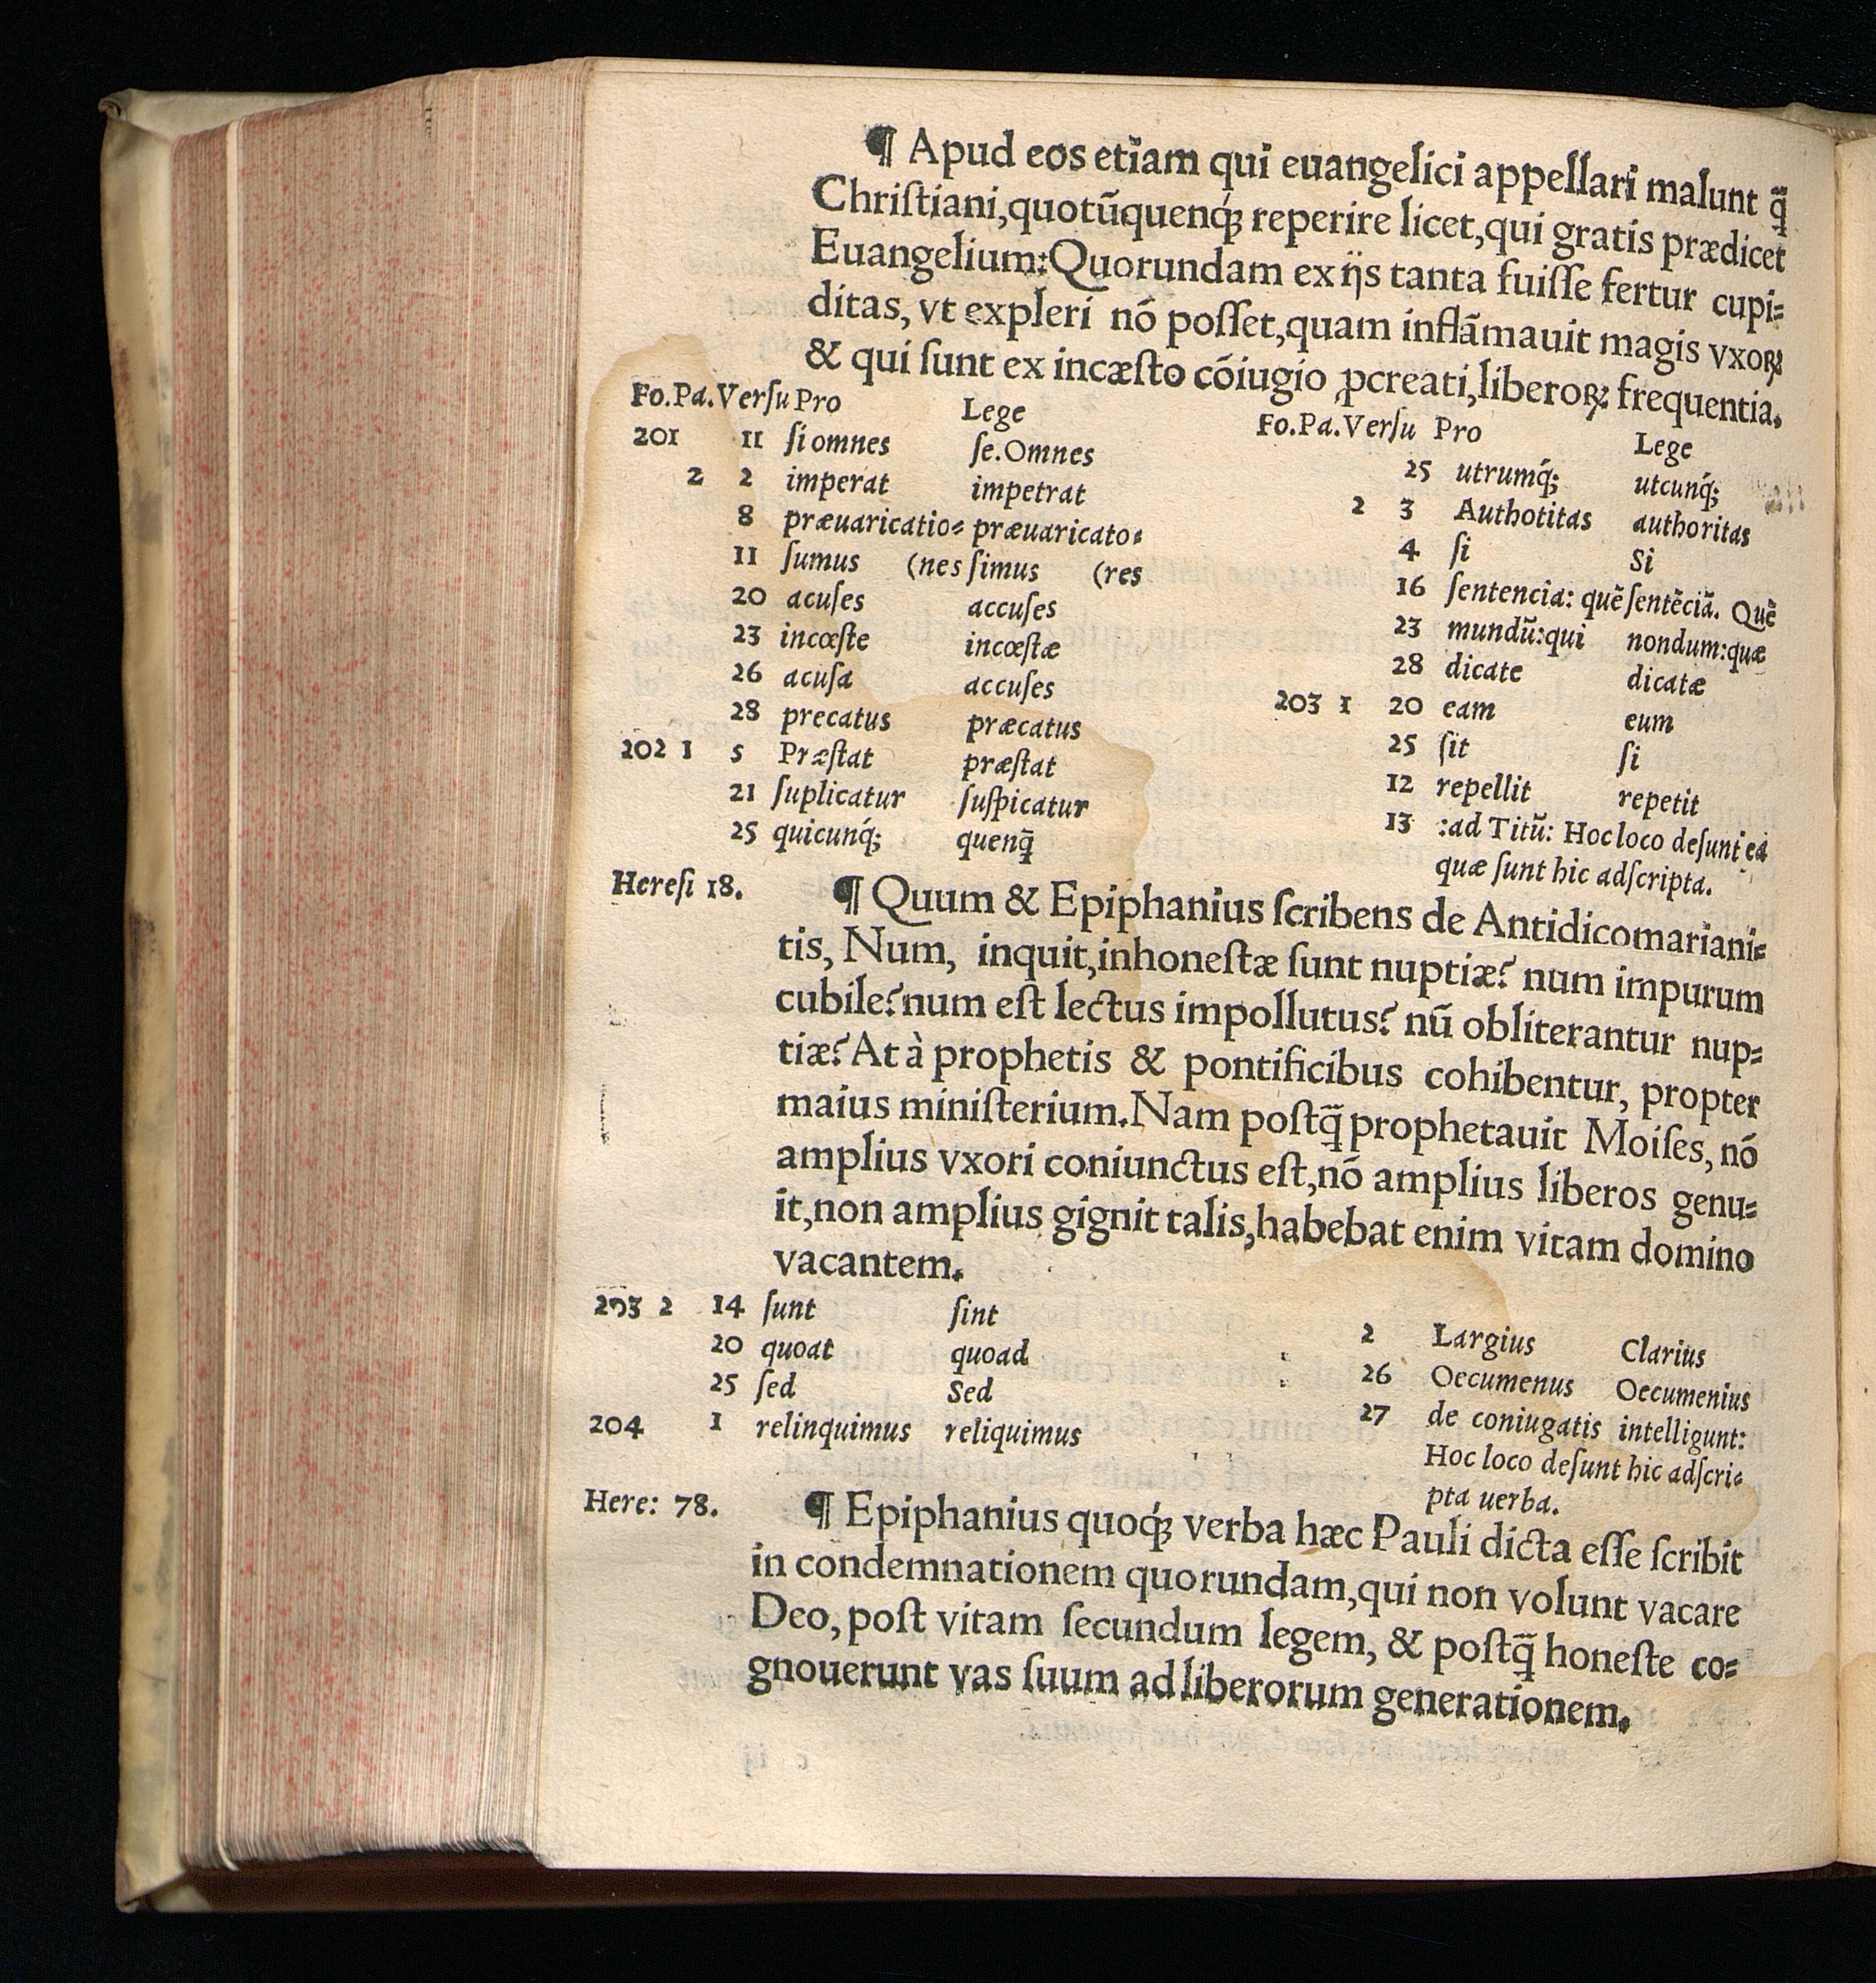 ¶ Apud eos etiam qui euangelici appellari malunt q̃
Chriſtiani, quotũquenq́ꝫ reperire licet, qui gratis prædicet
Euangelium: Quorundam ex ijs tanta fuiſſe fertur cupi=
ditas, vt expleri nõ poſſet, quam inflãmauit magis vxoꝝ
& qui ſunt ex incæſto cõiugio ꝓcreati, liberoꝝ frequentia.
Fo. Pa. Verſu Pro Lege
201 11 ſi omnes ſe. Omnes
2 2 imperat impetrat
8 præuaricatio= præuaricato=
11 ſumus (nes ſimus (res
20 acuſes accuſes
23 incœſte incœſtæ
26 acuſa accuſes
28 precatus præcatus
202 1 5 Præſtat præſtat
21 ſuplicatur ſuſpicatur
25 quicunq́; quenq̃
Fo. Pa. Verſu Pro Lege
25 utrumq́; utcunq́;
2 3 Authotitas authoritas
4 ſi Si
16 ſentencia: quẽ ſentẽciã. Quẽ
23 mundũ: qui nondum: quæ
28 dicate dicatæ
203 1 20 eam eum
25 ſit ſi
12 repellit repetit
13 : ad Titũ: Hoc loco deſunt ea
quæ ſunt hic adſcripta.
Hereſi 18.
¶ Quum & Epiphanius ſcribens de Antidicomariani=
tis, Num, inquit, inhoneſtæ ſunt nuptiæ? num impurum
cubile? num eſt lectus impollutus? nũ obliterantur nup=
tiæ? At à prophetis & pontificibus cohibentur, propter
maius miniſterium. Nam poſtq̃ prophetauit Moiſes, nõ
amplius vxori coniunctus eſt, nõ amplius liberos genu=
it, non amplius gignit talis, habebat enim vitam domino
vacantem.
203 2 14 ſunt ſint
20 quoat quoad
25 ſed Sed
204 1 relinquimus reliquimus
2 Largius Clarius
26 Oecumenus Oecumenius
27 de coniugatis intelligunt:
Hoc loco deſunt hic adſcri=
pta uerba.
Here: 78.
¶ Epiphanius quoq́ꝫ verba hæc Pauli dicta eſſe ſcribit
in condemnationem quorundam, qui non volunt vacare
Deo, poſt vitam ſecundum legem, & poſtq̃ honeſte co=
gnouerunt vas ſuum ad liberorum generationem.